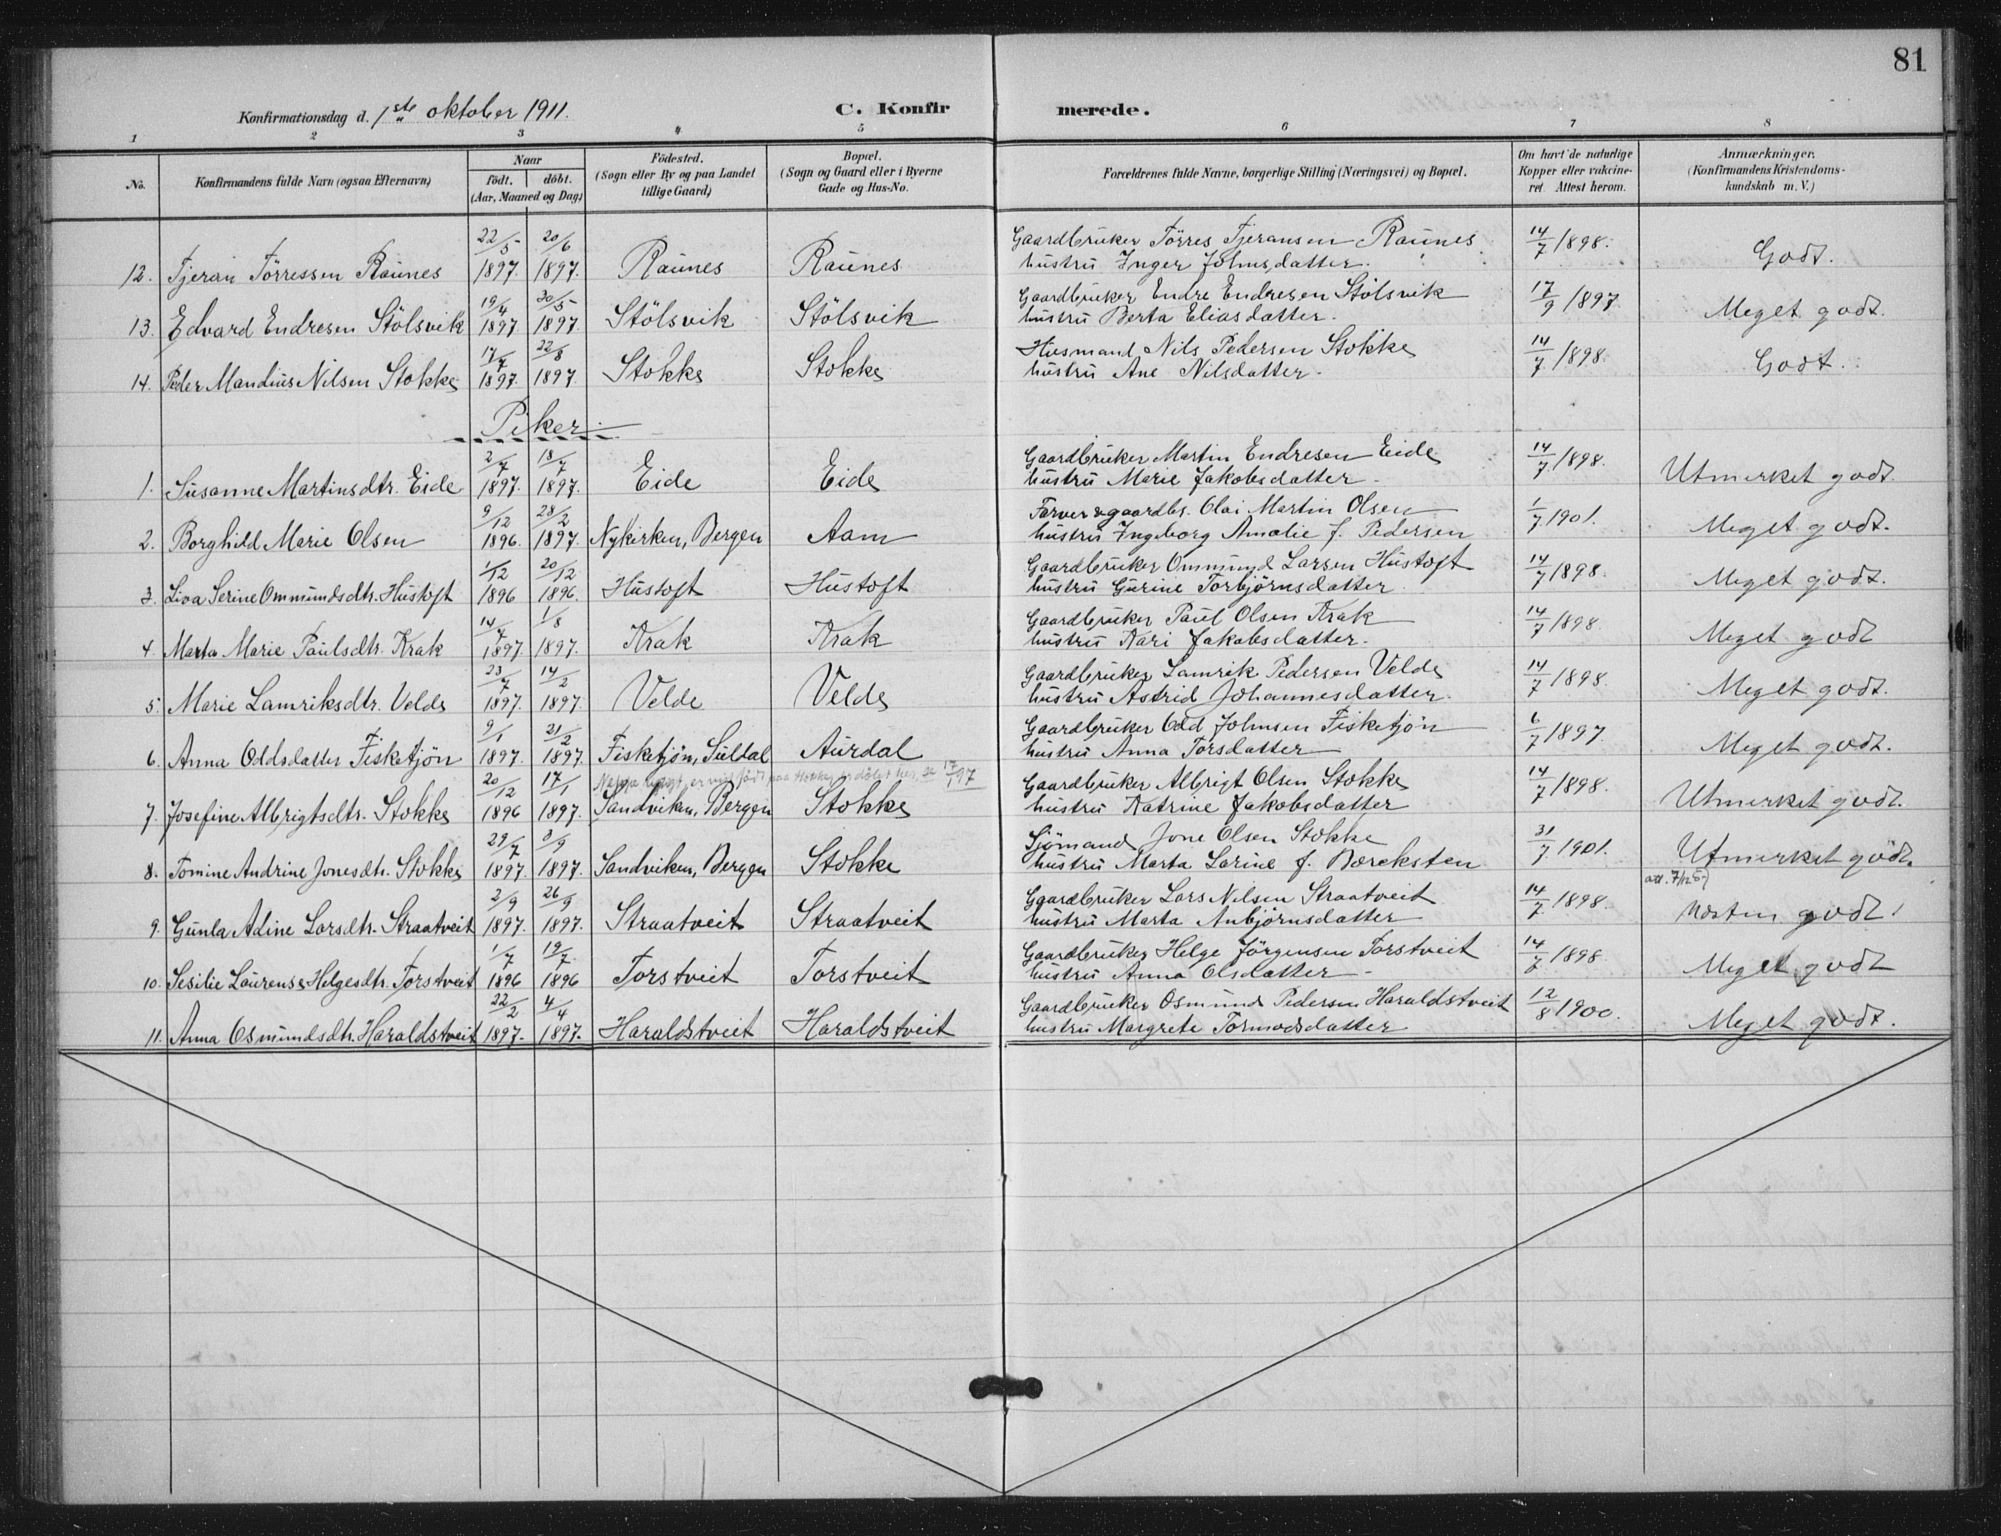 81
Konfirmationsdag d. 1ste oktober 1911. C. Konfirmerede.
1 2 3 4 5 6 7 8
No. Konfirmandens fulde Navn (ogsaa Efternavn) Naar födt. döbt. (Aar, Maaned og Dag) Födested. (Sogn eller By og paa Landet tillige Gaard) Bopæl. (Sogn og Gaard eller i Byerne Gade og Hus-No. Forældrenes fulde Navne, borgerlige Stilling (Næringsvei) og Bopæl. Om havt de naturlige Kopper eller vakcineret. Attest herom. Anmærkninger. (Konfirmandens Kristendomskundskab m. V.)
12. Tjeran Törressen Raunes 22/5 1897. 20/6 1897. Raunes Raunes Gaardbruker Törres Tjeransen Raunes hustru Inger Johnsdatter. 14/7 1898. Godt.
13. Edvard Endresen Stölsvik 19/4 1897. 30/5 1897. Stölsvik Stölsvik Gaardbruker Endre Endresen Stölsvik hustru Berta Eliasdatter. 17/9 1897. Meget godt.
14. Peder Mandius Nilsen Stokke 17/7 1897. 22/8 1897. Stokke Stokke Husmand Nils Pedersen Stokke hustru Ane Nilsdatter. 14/7 1898. Godt.
Piker.
1. Susanne Martinsdtr. Eide 2/7 1897. 18/7 1897. Eide Eide Gaardbruker Martin Endresen Eide hustru Marie Jakobsdatter. 14/7 1898. Utmerket godt.
2. Borghild Marie Olsen 9/12 1896. 28/2 1897. Nykirken, Bergen Aam Farver & gaardbr. Olai Martin Olsen hustru Ingeborg Amalie f. Pedersen 1/7 1901. Meget godt.
3. Liva Serine Ommundsdtr. Hustoft 1/12 1896 20/12 1896. Hustoft Hustoft Gaardbruker Ommund Larsen Hustoft hustru Gurine Torbjörnsdatter 14/7 1898. Meget godt.
4. Marta Marie Paulsdtr. Krak 14/7 1897. 1/8 1897. Krak Krak Gaardbruker Paul Olsen Krak hustru Kari Jakobsdatter. 14/7 1898. Meget godt
5. Marie Lamriksdtr. Velde 23/7 1897. 14/2 1897. Velde Velde Gaardbruker Lamrik Pedersen Velde hustru Astrid Johannesdatter. 14/7 1898. Meget godt.
6. Anna Oddsdatter Fisketjön 9/1 1897. 21/2 1897. Fisketjön, Suldal Aurdal Gaardbruker Odd Johnsen Fisketjön hustru Anna Torsdatter 6/7 1897. Meget godt.
7. Josefine Albrigtsdtr. Stokke 20/12 1896 17/1 1897. Sandviken, Bergen Stokke Gaardbruker Albrigt Olsen Stokke hustru Katrine Jakobsdatter 14/7 1898. Utmerket godt.
8. Tomine Andrine Jonesdtr. Stokke 29/7 1897. 3/9 1897. Sandviken, Bergen Stokke Sjömand Jone Olsen Stokke hustru Marta Larine f. Bærcksten 31/7 1901. Utmerket godt.
9. Gunla Adine Larsdtr. Straatveit 2/9 1897. 26/9 1897. Straatveit Straatveit Gaardbruker Lars Nilsen Straatveit hustru Marta Anbjörnsdatter 14/7 1898. att. 7/12 57 Næsten godt.
10. Sesilie Laurense Helgesdtr. Torstveit 1/7 1896 19/7 1896 Torstveit Torstveit Gaardbruker Helge Jörgensen Torstveit hustru Anna Olsdatter 14/7 1898. Meget godt
11. Anna Osmundsdtr. Haraldstveit 22/2 1897. 4/4 1897. Haraldstveit Haraldstveit Gaardbruker Osmund Pedersen Haraldstveit hustru Margrete Tormodsdatter 12/8 1900. Meget godt.